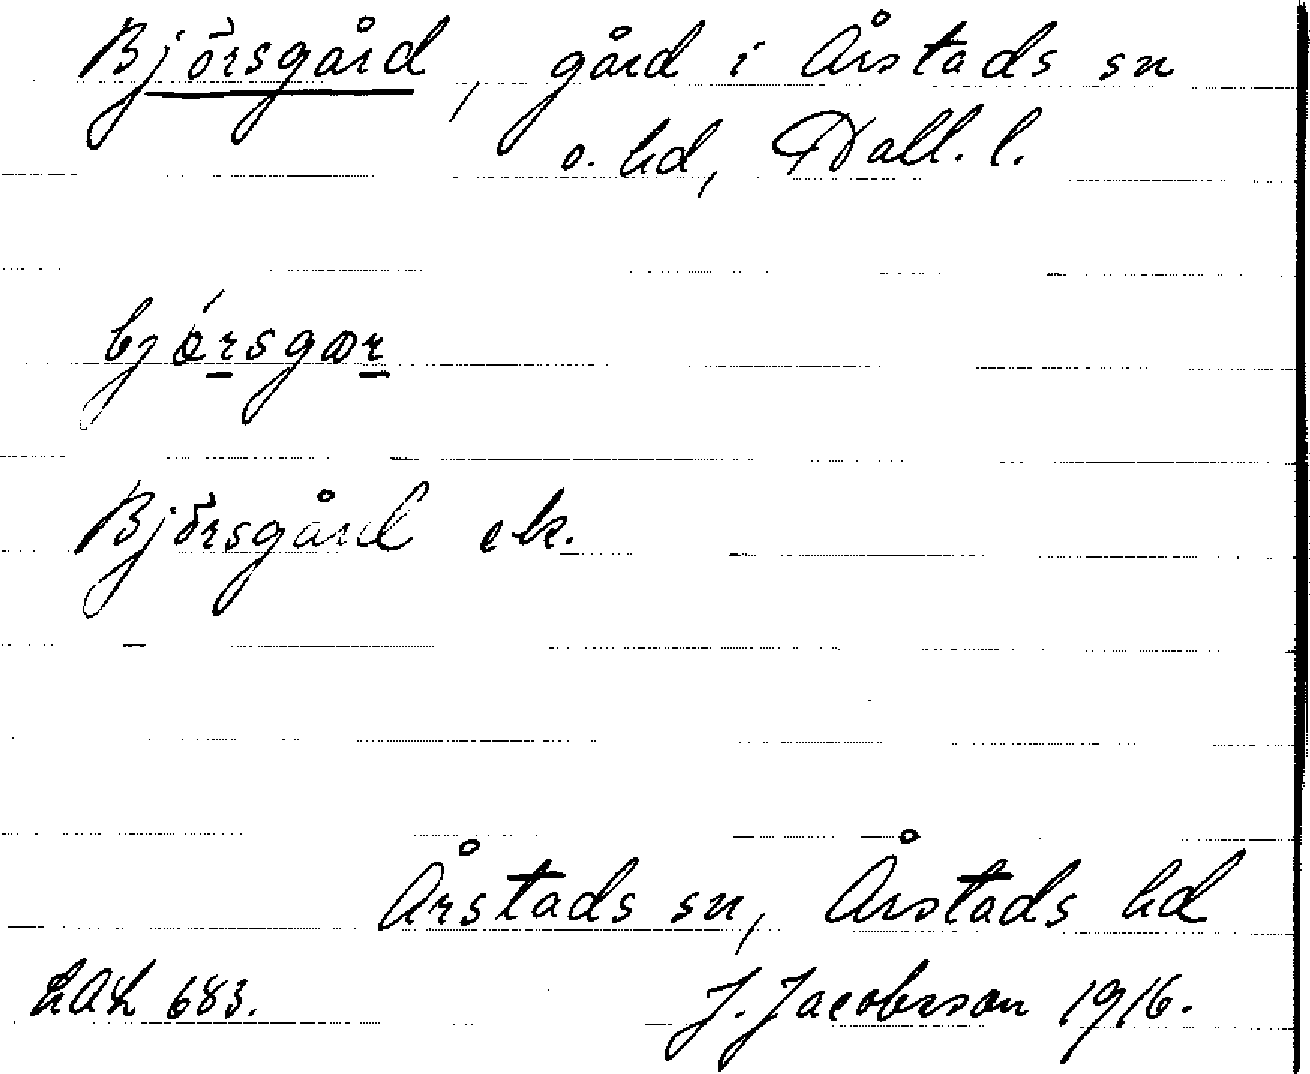 Björsgård, gård i Årstads sn
o. hd, Hall. l.
bjǿrsgær
Björsgård ek.
Årstads sn, Årstads hd
LAL 683. J. Jacobsson 1916.